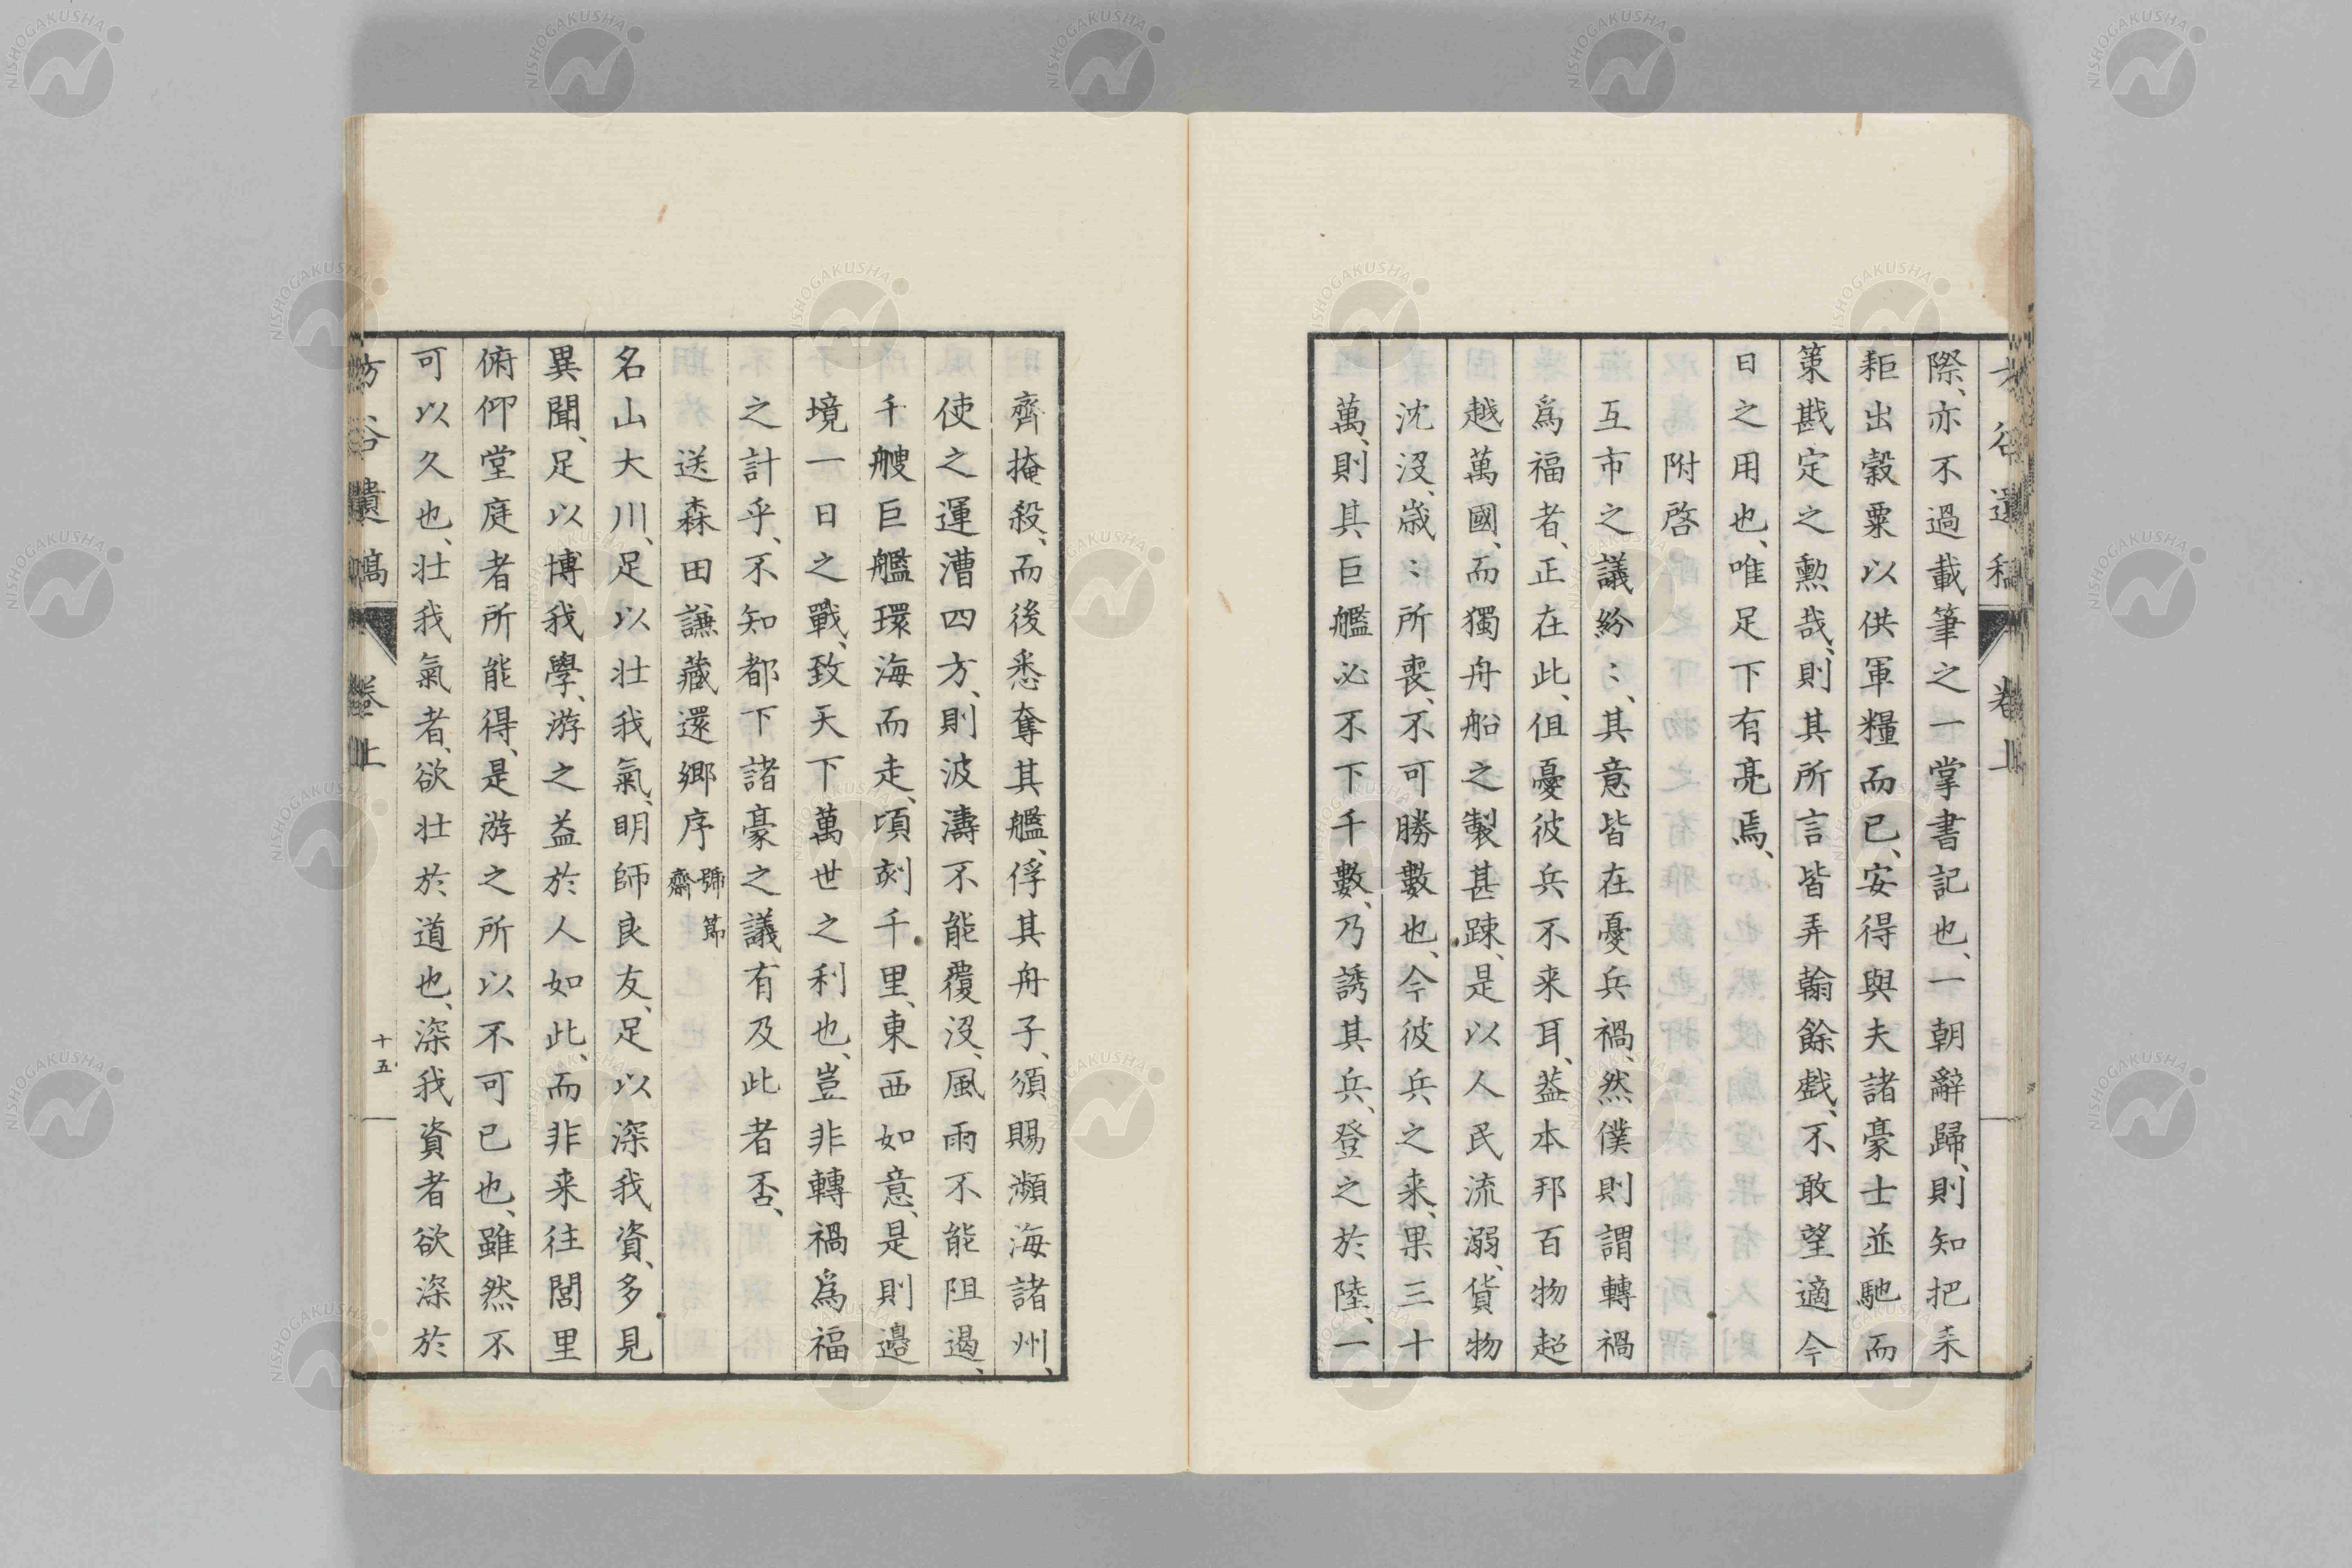 際、亦不過載筆之一掌書記也、一朝辭歸、則知把耒
耟出穀粟以供軍糧而已、安得與夫諸豪士並馳而
策戡定之勲哉、則其所言皆弄翰餘戲、不敢望適今
日之用也、唯足下有亮焉、
附啓
互市之議紛〻、其意皆在憂兵禍、然僕則謂轉禍
爲福者、正在此、但憂彼兵不来耳、葢本邦百物超
越萬國、而獨舟船之製甚踈、是以人民流溺、貨物
沈沒、歳〻所喪、不可勝數也、今彼兵之来、果三十
萬、則其巨艦必不下千數、乃誘其兵、登之於陸、一
齊掩殺、而後悉奪其艦、俘其舟子、須賜瀕海諸州、
使之運漕四方、則波濤不能覆沒、風雨不能阻遏、
千艘巨艦環海而走、頃刻千里、東西如意、是則邉
境一日之戰、致天下萬世之利也、豈非轉禍爲福
之計乎、不知都下諸豪之議、有及此者否、
送森田謙藏還郷序 號節齋
名山大川、足以壮我氣、明師良友、足以深我資、多見
異聞、足以博我學、游之益於人如此、而非来往閭里
俯仰堂庭者所能得、是游之所以不可已也、雖然不
可以久也、壮我氣者、欲壮於道也、深我資者欲深於
方谷遺稿 卷上 十五
NISHOGAKUSHA